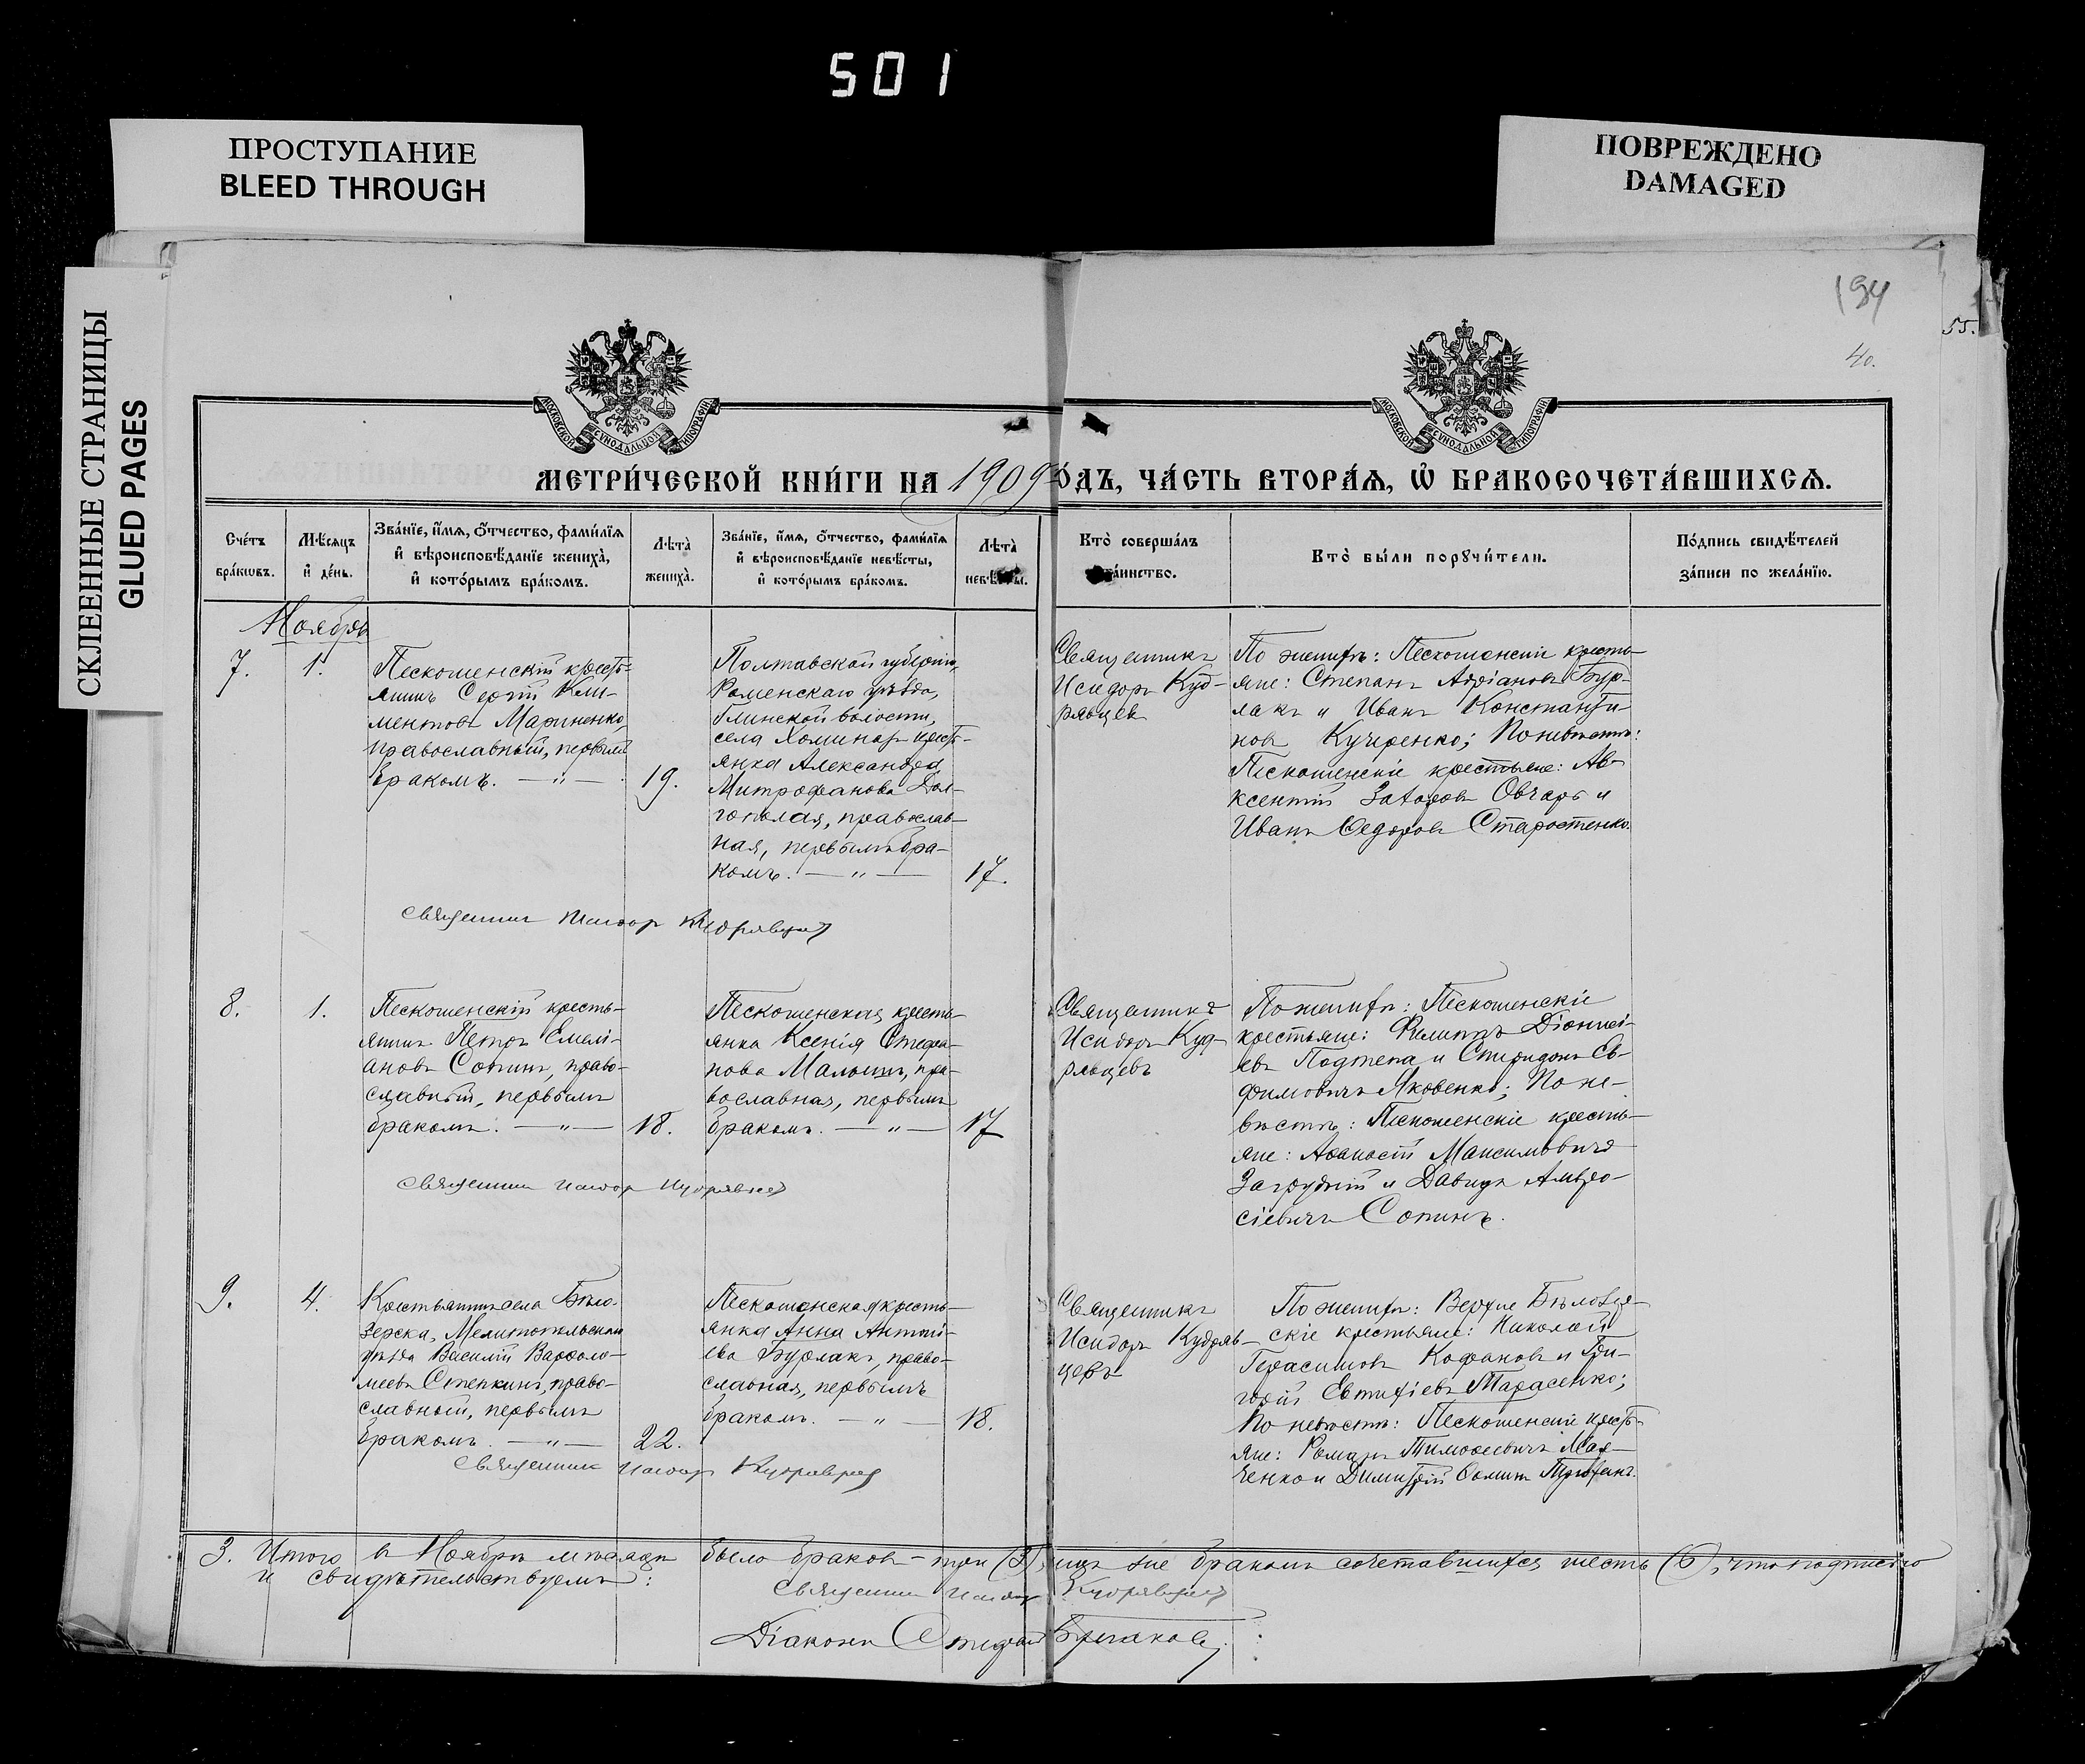 501
ПРОСТУПАНИЕ
BLEED THROUGH
ПОВРЕЖДЕНО
DAMAGED
СКЛЕЕННЫЕ СТРАНИЦЫ
GLUED PAGES
194
55.
40.
МОСКОВСКОЙ СѴНОДАЛЬНОЙ ТИПОГРАФІИ
МОСКОВСКОЙ СѴНОДАЛЬНОЙ ТИПОГРАФІИ
МЕТРИ́ЧЕСКОЙ КНИ́ГИ НА 1909 ОДЪ, ЧА́СТЬ ВТОРА́Я, Ѡ БРАКОСОЧЕТА́ВШИХСЯ.
Сче́тъ бра́кωвъ.
Мѣ́сяцъ и де́нь.
Зва́нїе, и́мя, о́тчество, фами́лїя и вѣроисповѣ́данїе жениха̀, и кото́рымъ бра́комъ.
Лѣта̀ жениха̀.
Зва́нїе, и́мя, о́тчество, фами́лїя и вѣроисповѣ́данїе невѣ́сты, и кото́рымъ бра́комъ.
Лѣта̀ невѣ́сты.
Кто̀ соверша́лъ та́инство.
Кто̀ бы́ли порꙋчи́тели.
По́дпись свидѣ́телей за́писи по жела́нїю.
Ноябрь
7.
1.
Пескошенскій кресть-
янинъ Сергій Кли-
ментовъ Мариненко,
православный, первымъ
бракомъ. — " —
19.
Полтавской губерніи,
Роменскаго уѣзда,
Глинской волости,
села Хоминцы кресть-
янка Александра
Митрофанова Дол-
гополая, православ-
ная, первымъ бра-
комъ. — " —
17.
Священникъ
Исидоръ Куд-
рявцевъ
По женихѣ: Пескошенскіе кресть-
яне: Степанъ Адріановъ Бур-
лакъ и Иванъ Константи-
новъ Кучеренко; По невѣстѣ:
Пескошенскіе крестьяне: Ав-
ксентій Овчаръ и
Иванъ Ѳедоровъ Старостенко.
Священникъ Исидоръ Кудрявцевъ
8.
1.
Пескошенскій кресть-
янинъ Петръ Емелі-
ановъ Сопинъ, право-
славный, первымъ
бракомъ. — " —
18.
Пескошенская кресть-
янка Ксенія Стефа-
нова Малышъ, пра-
вославная, первымъ
бракомъ. — " —
17
Священникъ
Исидоръ Куд-
рявцевъ
По женихѣ: Пескошенскіе
крестьяне: Филиппъ Діонисі-
евъ Подтепа и Спиридонъ Ев-
фимовичъ Яковенко; По не-
вѣстѣ: Пескошенскіе кресть-
яне: Аѳанасій Максимовичъ
Загрудній и Давидъ Амвро-
сіевичъ Сопинъ.
Священникъ Исидоръ Кудрявцевъ
9.
4.
Крестьянинъ села Бѣло-
зерска, Мелитопольскаго
уѣзда Василій Варѳоло-
меевъ Степкинъ, право-
славный, первымъ
бракомъ. — " —
22.
Пескошенская кресть-
янка Анна Антоні-
ева Бурлакъ, право-
славная, первымъ
бракомъ. — " —
18.
Священникъ
Исидоръ Кудряв-
цевъ
По женихѣ: Верхне Бѣлозер-
скіе крестьяне: Николай
Герасимовъ Кофановъ и Гри-
горій Евтихіевъ Тарасенко;
По невѣстѣ: Пескошенскіе кресть-
яне: Романъ Тимоѳеевичъ Мар-
ченко и Димитрій Ѳоминъ
Священникъ Исидоръ Кудрявцевъ
3. Итого въ Ноябрѣ мѣсяцѣ было браковъ - три (3), лицъ же бракомъ сочетавшихся шесть (6), что подписью
и свидѣтельствуемъ:
Священникъ Исидоръ Кудрявцевъ
Діаконъ